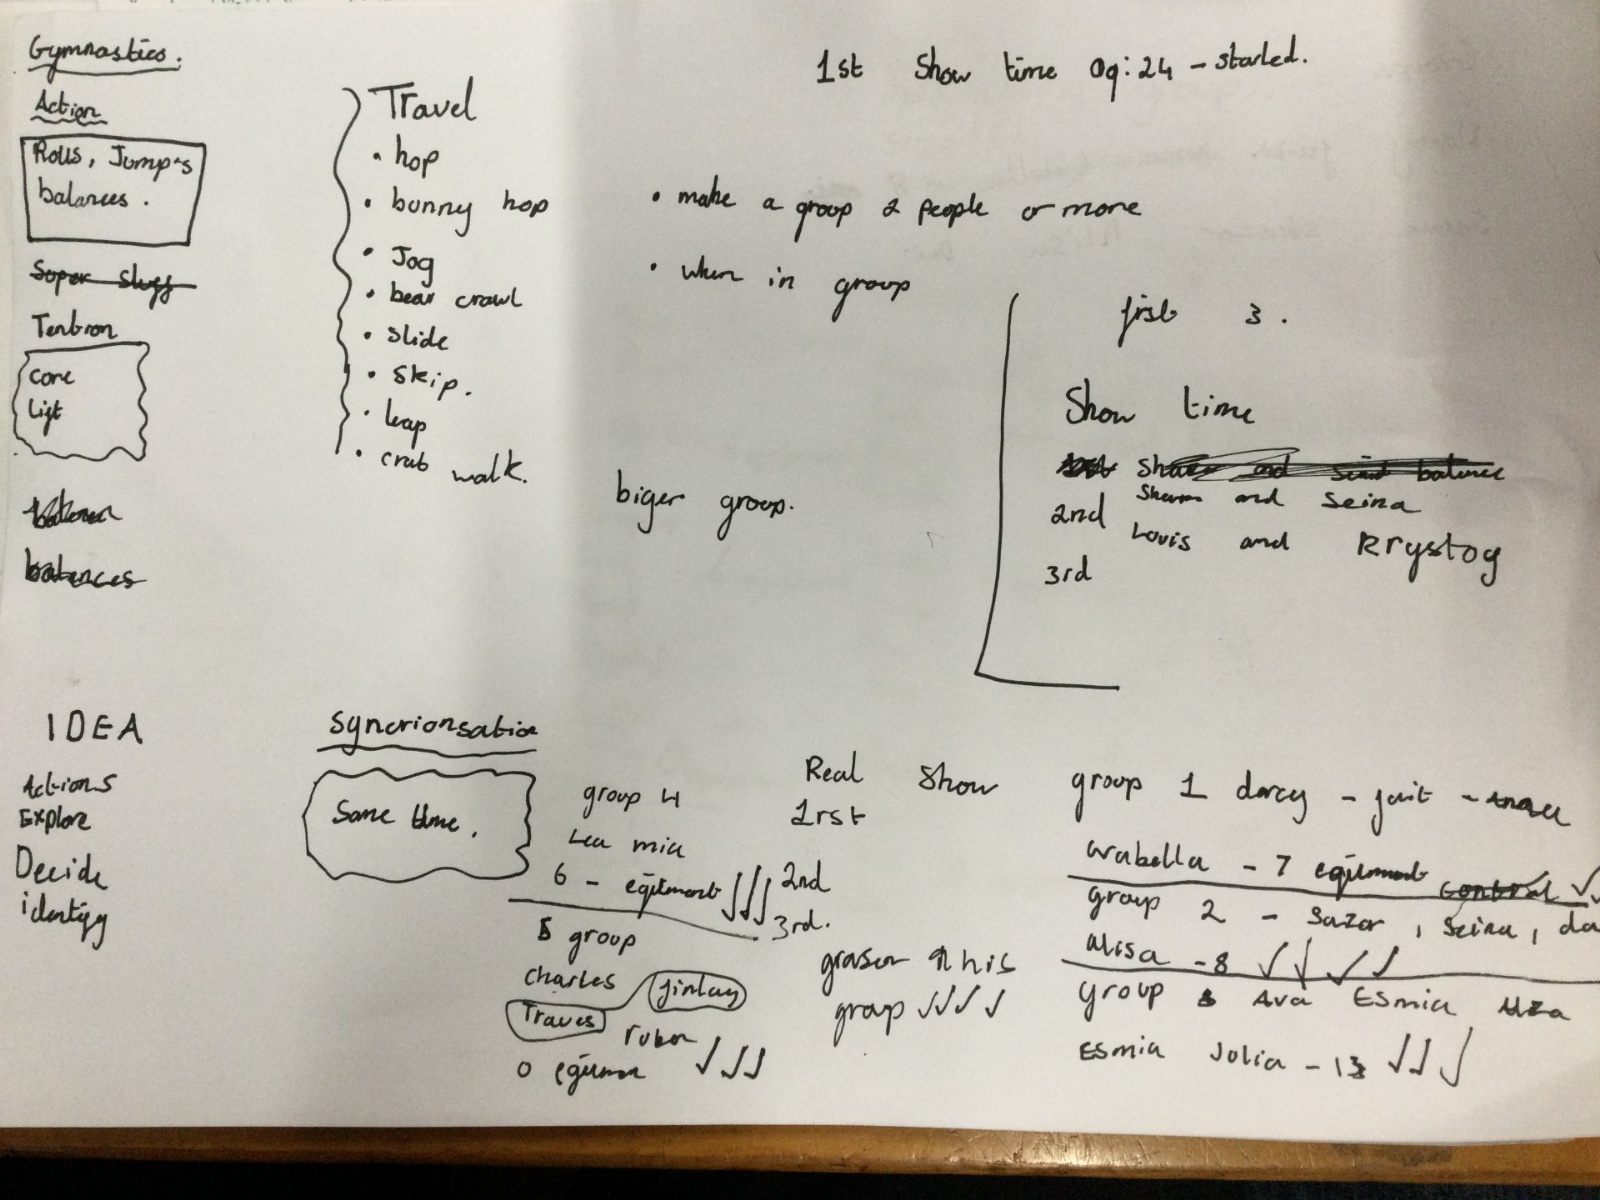 Gymnastics.
Action
Rolls, Jump's
balances.
Super stuff
Tentron
core
lift
balances
Travel
• hop
• bunny hop
• Jog
• bear crawl
• slide
• skip.
• leap
• crab walk.
1st Show time 09:24 - started.
• make a group 2 people or more
• when in group
biger group.
first 3.
Show time
and balance
and Seina
2nd Louis and Krystog
3rd
IDEA
Actions
Explore
Decide
identify
Syncrionsation
Same time.
group 4
Lea mia
6 - eqitment ✓✓✓
5 group
Charles finlay
Traves
ruben
0 ✓✓✓
Real Show
1rst
2nd
3rd.
group ✓✓✓✓
group 1 darcy -
arabella - 7 control ✓
group 2 - Sazar, Seina, da
alisa - 8 ✓✓✓✓
group Ava Esmia
Esmia Julia - 13 ✓✓✓